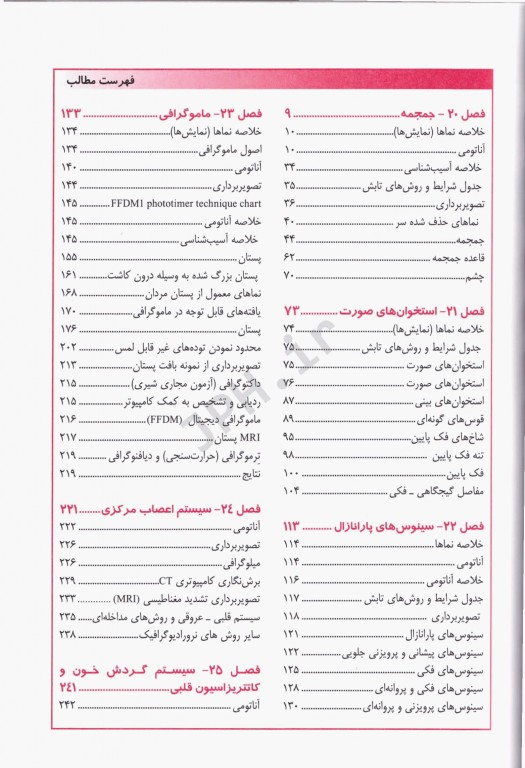 فهرست مطالب
فصل ۲۰ - جمجمه ........ ۹
خلاصه نماها (نمایش‌ها) ........ ۱۰
آناتومی ........ ۱۰
خلاصه آسیب‌شناسی ........ ۳۴
جدول شرایط و روش‌های تابش ........ ۳۵
تصویربرداری ........ ۳۶
نماهای حذف شده سر ........ ۴۰
جمجمه ........ ۴۴
قاعده جمجمه ........ ۶۲
چشم ........ ۷۰
فصل ۲۱- استخوان‌های صورت ........ ۷۳
خلاصه نماها (نمایش‌ها) ........ ۷۴
جدول شرایط و روش‌های تابش ........ ۷۵
استخوان‌های صورت ........ ۷۵
استخوان‌های صورت ........ ۷۶
استخوان‌های بینی ........ ۸۷
قوس‌های گونه‌ای ........ ۸۹
شاخ‌های فک پایین ........ ۹۵
تنه فک پایین ........ ۹۸
فک پایین ........ ۱۰۰
مفاصل گیجگاهی ـ فکی ........ ۱۰۴
فصل ۲۲- سینوس‌های پارانازال ........ ۱۱۳
خلاصه نماها ........ ۱۱۴
آناتومی ........ ۱۱۴
خلاصه آناتومی ........ ۱۱۶
جدول شرایط و روش‌های تابش ........ ۱۱۷
تصویربرداری ........ ۱۱۸
سینوس‌های پارانازال ........ ۱۲۱
سینوس‌های پیشانی و پرویزنی جلویی ........ ۱۲۲
سینوس‌های فکی ........ ۱۲۵
سینوس‌های فکی و پروانه‌ای ........ ۱۲۸
سینوس‌های پرویزنی و پروانه‌ای ........ ۱۳۰
فصل ۲۳- ماموگرافی ........ ۱۳۳
خلاصه نماها (نمایش‌ها) ........ ۱۳۴
اصول ماموگرافی ........ ۱۳۴
آناتومی ........ ۱۴۰
تصویربرداری ........ ۱۴۴
FFDM1 phototimer technique chart ........ ۱۴۵
خلاصه آناتومی ........ ۱۴۵
خلاصه آسیب‌شناسی ........ ۱۴۵
پستان ........ ۱۵۵
پستان بزرگ شده به وسیله درون کاشت ........ ۱۶۱
نماهای معمول از پستان مردان ........ ۱۶۸
یافته‌های قابل توجه در ماموگرافی ........ ۱۷۰
پستان ........ ۱۷۶
محدود نمودن توده‌های غیر قابل لمس ........ ۲۰۲
تصویربرداری از نمونه بافت پستان ........ ۲۱۳
داکتوگرافی (آزمون مجاری شیری) ........ ۲۱۵
ردیابی و تشخیص به کمک کامپیوتر ........ ۲۱۵
ماموگرافی دیجیتال (FFDM) ........ ۲۱۶
MRI پستان ........ ۲۱۷
ترموگرافی (حرارت‌سنجی) و دیافنوگرافی ........ ۲۱۹
نتایج ........ ۲۱۹
فصل ۲۴- سیستم اعصاب مرکزی ........ ۲۲۱
آناتومی ........ ۲۲۲
تصویربرداری ........ ۲۲۶
میلوگرافی ........ ۲۲۶
برش‌نگاری کامپیوتری CT ........ ۲۲۹
تصویربرداری تشدید مغناطیسی (MRI) ........ ۲۳۳
سیستم قلبی ـ عروقی و روش‌های مداخله‌ای ........ ۲۳۵
سایر روش های نرورادیوگرافیک ........ ۲۳۸
فصل ۲۵- سیستم گردش خون و
کاتتریزاسیون قلبی ........ ۲۴۱
آناتومی ........ ۲۴۲
JPH.ir